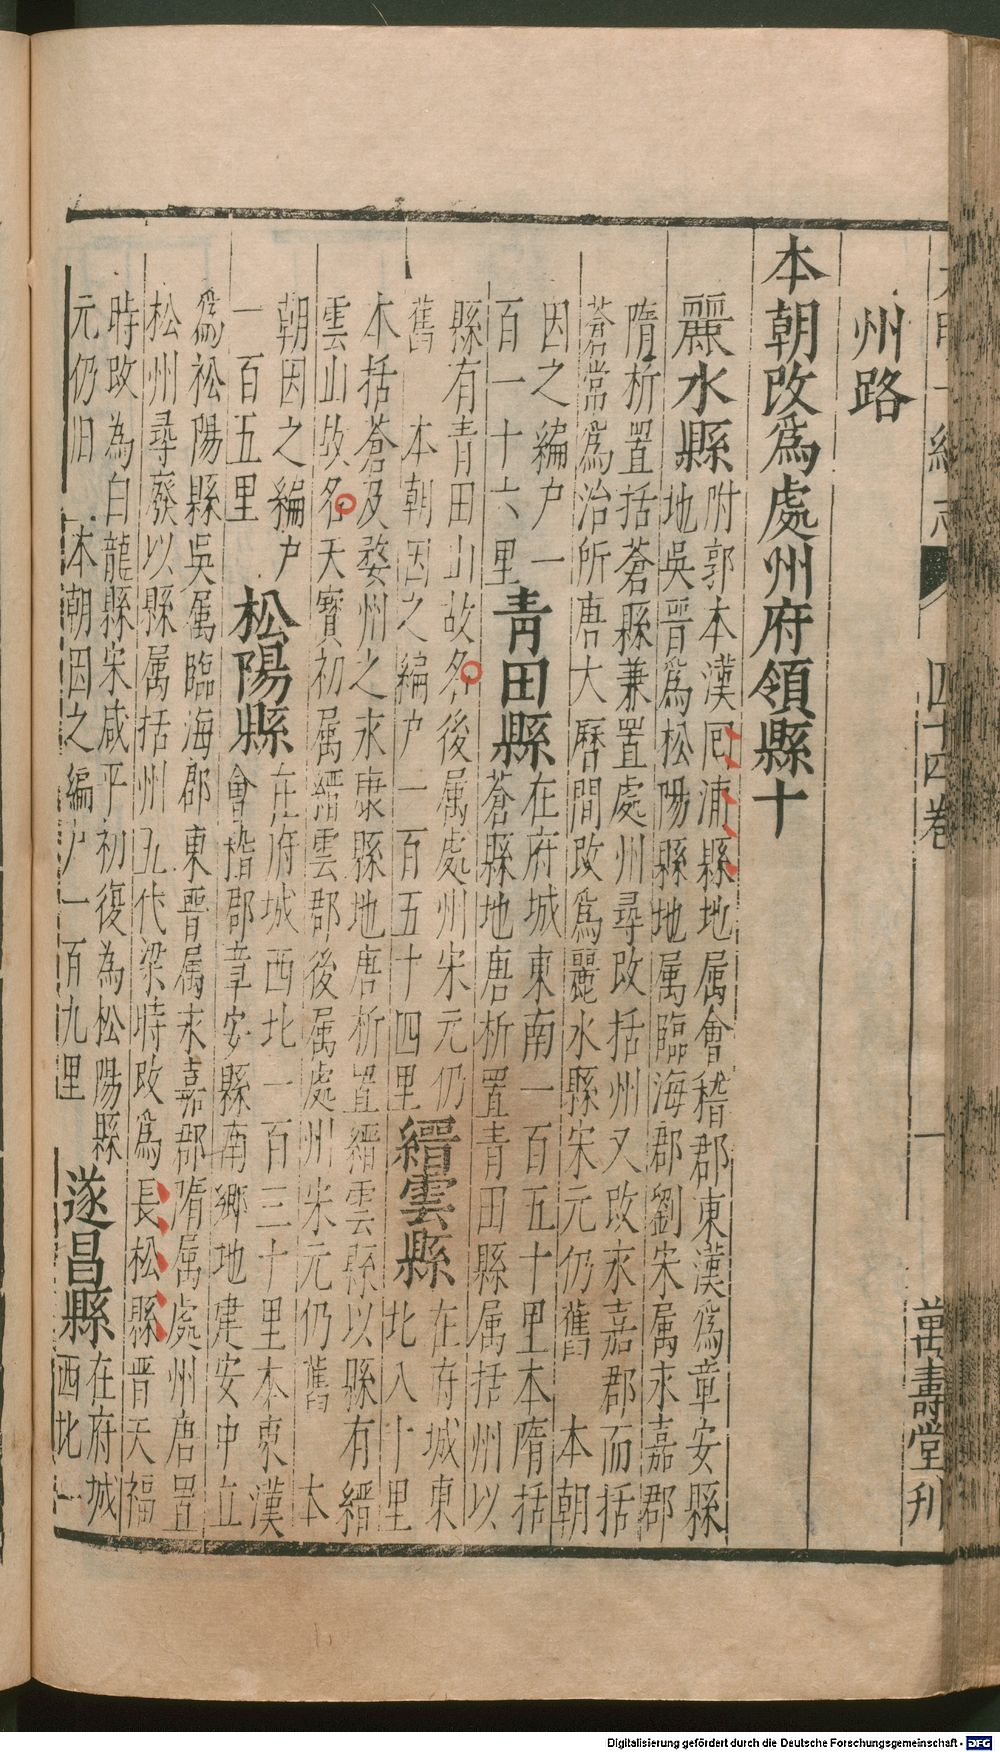 大明一統志 四十四卷 一 萬壽堂刊
州路
本朝改爲處州府領縣十
麗水縣
附郭本漢囘浦縣地属會稽郡東漢爲章安縣
地吳晋爲松陽縣地属臨海郡劉宋属永嘉郡
隋析置括蒼縣兼置處州尋改括州又改永嘉郡而括
蒼常爲治所唐大曆間改爲麗水縣宋元仍舊 本朝
因之編户一
百一十六里
青田縣
在府城東南一百五十里本隋括
蒼縣地唐析置青田縣属括州以
縣有青田山故名後属處州宋元仍
舊 本朝因之編户一百五十四里
縉雲縣
在府城東
北八十里
本括蒼及婺州之永康縣地唐析置縉雲縣以縣有縉
雲山故名天寳初属縉雲郡後属處州宋元仍舊 本
朝因之編户
一百五里
松陽縣
在府城西北一百三十里本東漢
會稽郡章安縣南鄉地建安中立
爲松陽縣吳属臨海郡東晋属永嘉郡隋属處州唐置
松州尋廢以縣属括州五代梁時改爲長松縣晋天福
時改為白龍縣宋咸平初復為松陽縣
元仍旧 本朝因之編户一百九里
遂昌縣
在府城
西北一
Digitalisierung gefördert durch die Deutsche Forschungsgemeinschaft - DFG